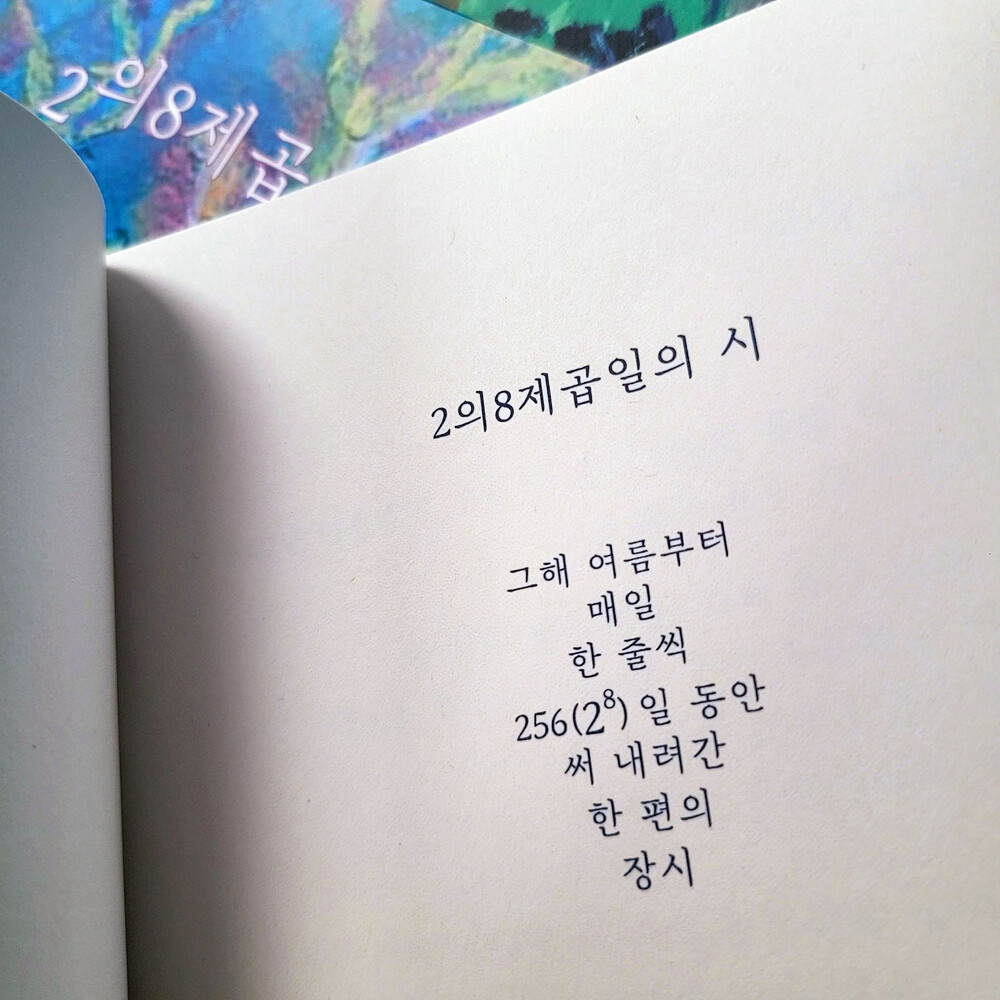 2의8제곱
2의8제곱일의 시
그해 여름부터
매일
한 줄씩
256(2⁸)일 동안
써 내려간
한 편의
장시